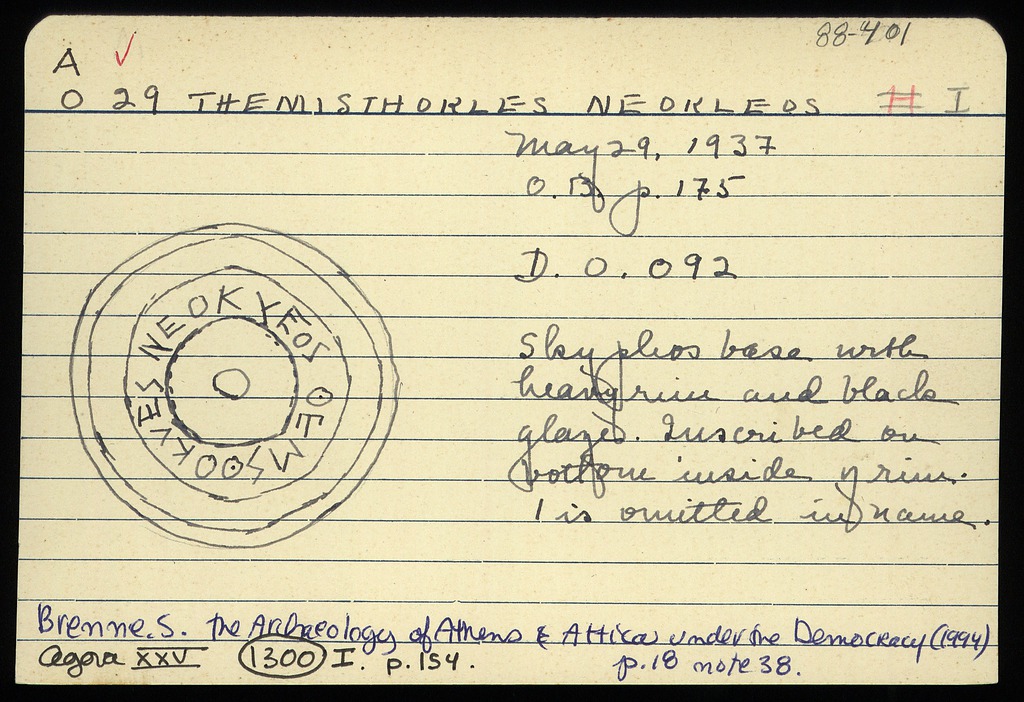 88-401
A ✓
O 29 THEMISTHOKLES NEOKLEOS H I
May 29, 1937
O.B. p. 175
D. O. 092
Skyphos base with
heavy rim and black
glaze. Inscribed on
bottom inside of rim.
I is omitted in name.
NEOKLEOS ΘEMSΘOKLES
Brenne. S. The Archaeology of Athens & Attica under the Democracy (1994)
p. 18 note 38.
Agora XXV 1300 I. p. 154.